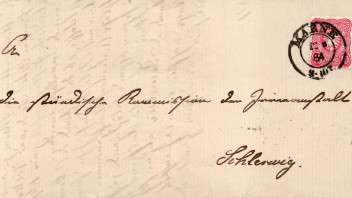 An
die ständische Kommission der Irrenanstalt
Schleswig.
MARNE
84